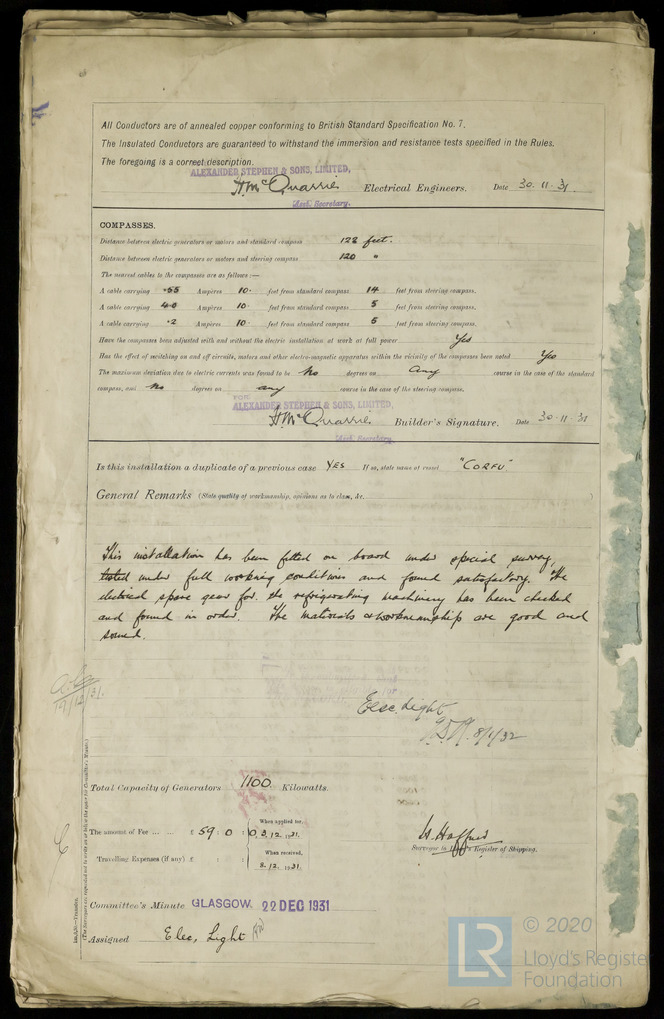 All Conductors are of annealed copper conforming to British Standard Specification No. 7.
The Insulated Conductors are guaranteed to withstand the immersion and resistance tests specified in the Rules.
The foregoing is a correct description.
ALEXANDER STEPHEN & SONS, LIMITED,
H McQuarrie Electrical Engineers. Date 30. 11. 31.
Asst. Secretary.
COMPASSES.
Distance between electric generators or motors and standard compass 122 feet.
Distance between electric generators or motors and steering compass 120 "
The nearest cables to the compasses are as follows :—
A cable carrying .55 Ampères 10. feet from standard compass 14 feet from steering compass.
A cable carrying 4.0 Ampères 10 feet from standard compass 5 feet from steering compass.
A cable carrying .2 Ampères 10 feet from standard compass 5 feet from steering compass.
Have the compasses been adjusted with and without the electric installation at work at full power Yes
Has the effect of switching on and off circuits, motors and other electro-magnetic apparatus within the vicinity of the compasses been noted Yes
The maximum deviation due to electric currents was found to be No degrees on any course in the case of the standard
compass, and No degrees on any course in the case of the steering compass.
FOR
ALEXANDER STEPHEN & SONS, LIMITED,
H McQuarrie Builder's Signature. Date 30-11 31
Asst. Secretary.
Is this installation a duplicate of a previous case YES If so, state name of vessel "CORFU"
General Remarks (State quality of workmanship, opinions as to class, &c. )
This installation has been fitted on board under special survey,
tested under full working conditions and found satisfactory. The
electrical spare gear for the refrigerating machinery has been checked
and found in order. The materials & workmanship are good and
sound.
19/12/31.
Elec. Light
8/1/32
Total Capacity of Generators 1100 Kilowatts.
The amount of Fee ... ... £ 59 : 0 : 0 When applied for, 3.12.1931.
Travelling Expenses (if any) £ : : When received, 8.12.1931.
Surveyor to Lloyd's Register of Shipping.
Committee's Minute GLASGOW 22 DEC 1931
Assigned Elec, Light
(The Surveyors are requested not to write on or below the space for Committee's Minute.)
© 2020
LR
Lloyd's Register
Foundation